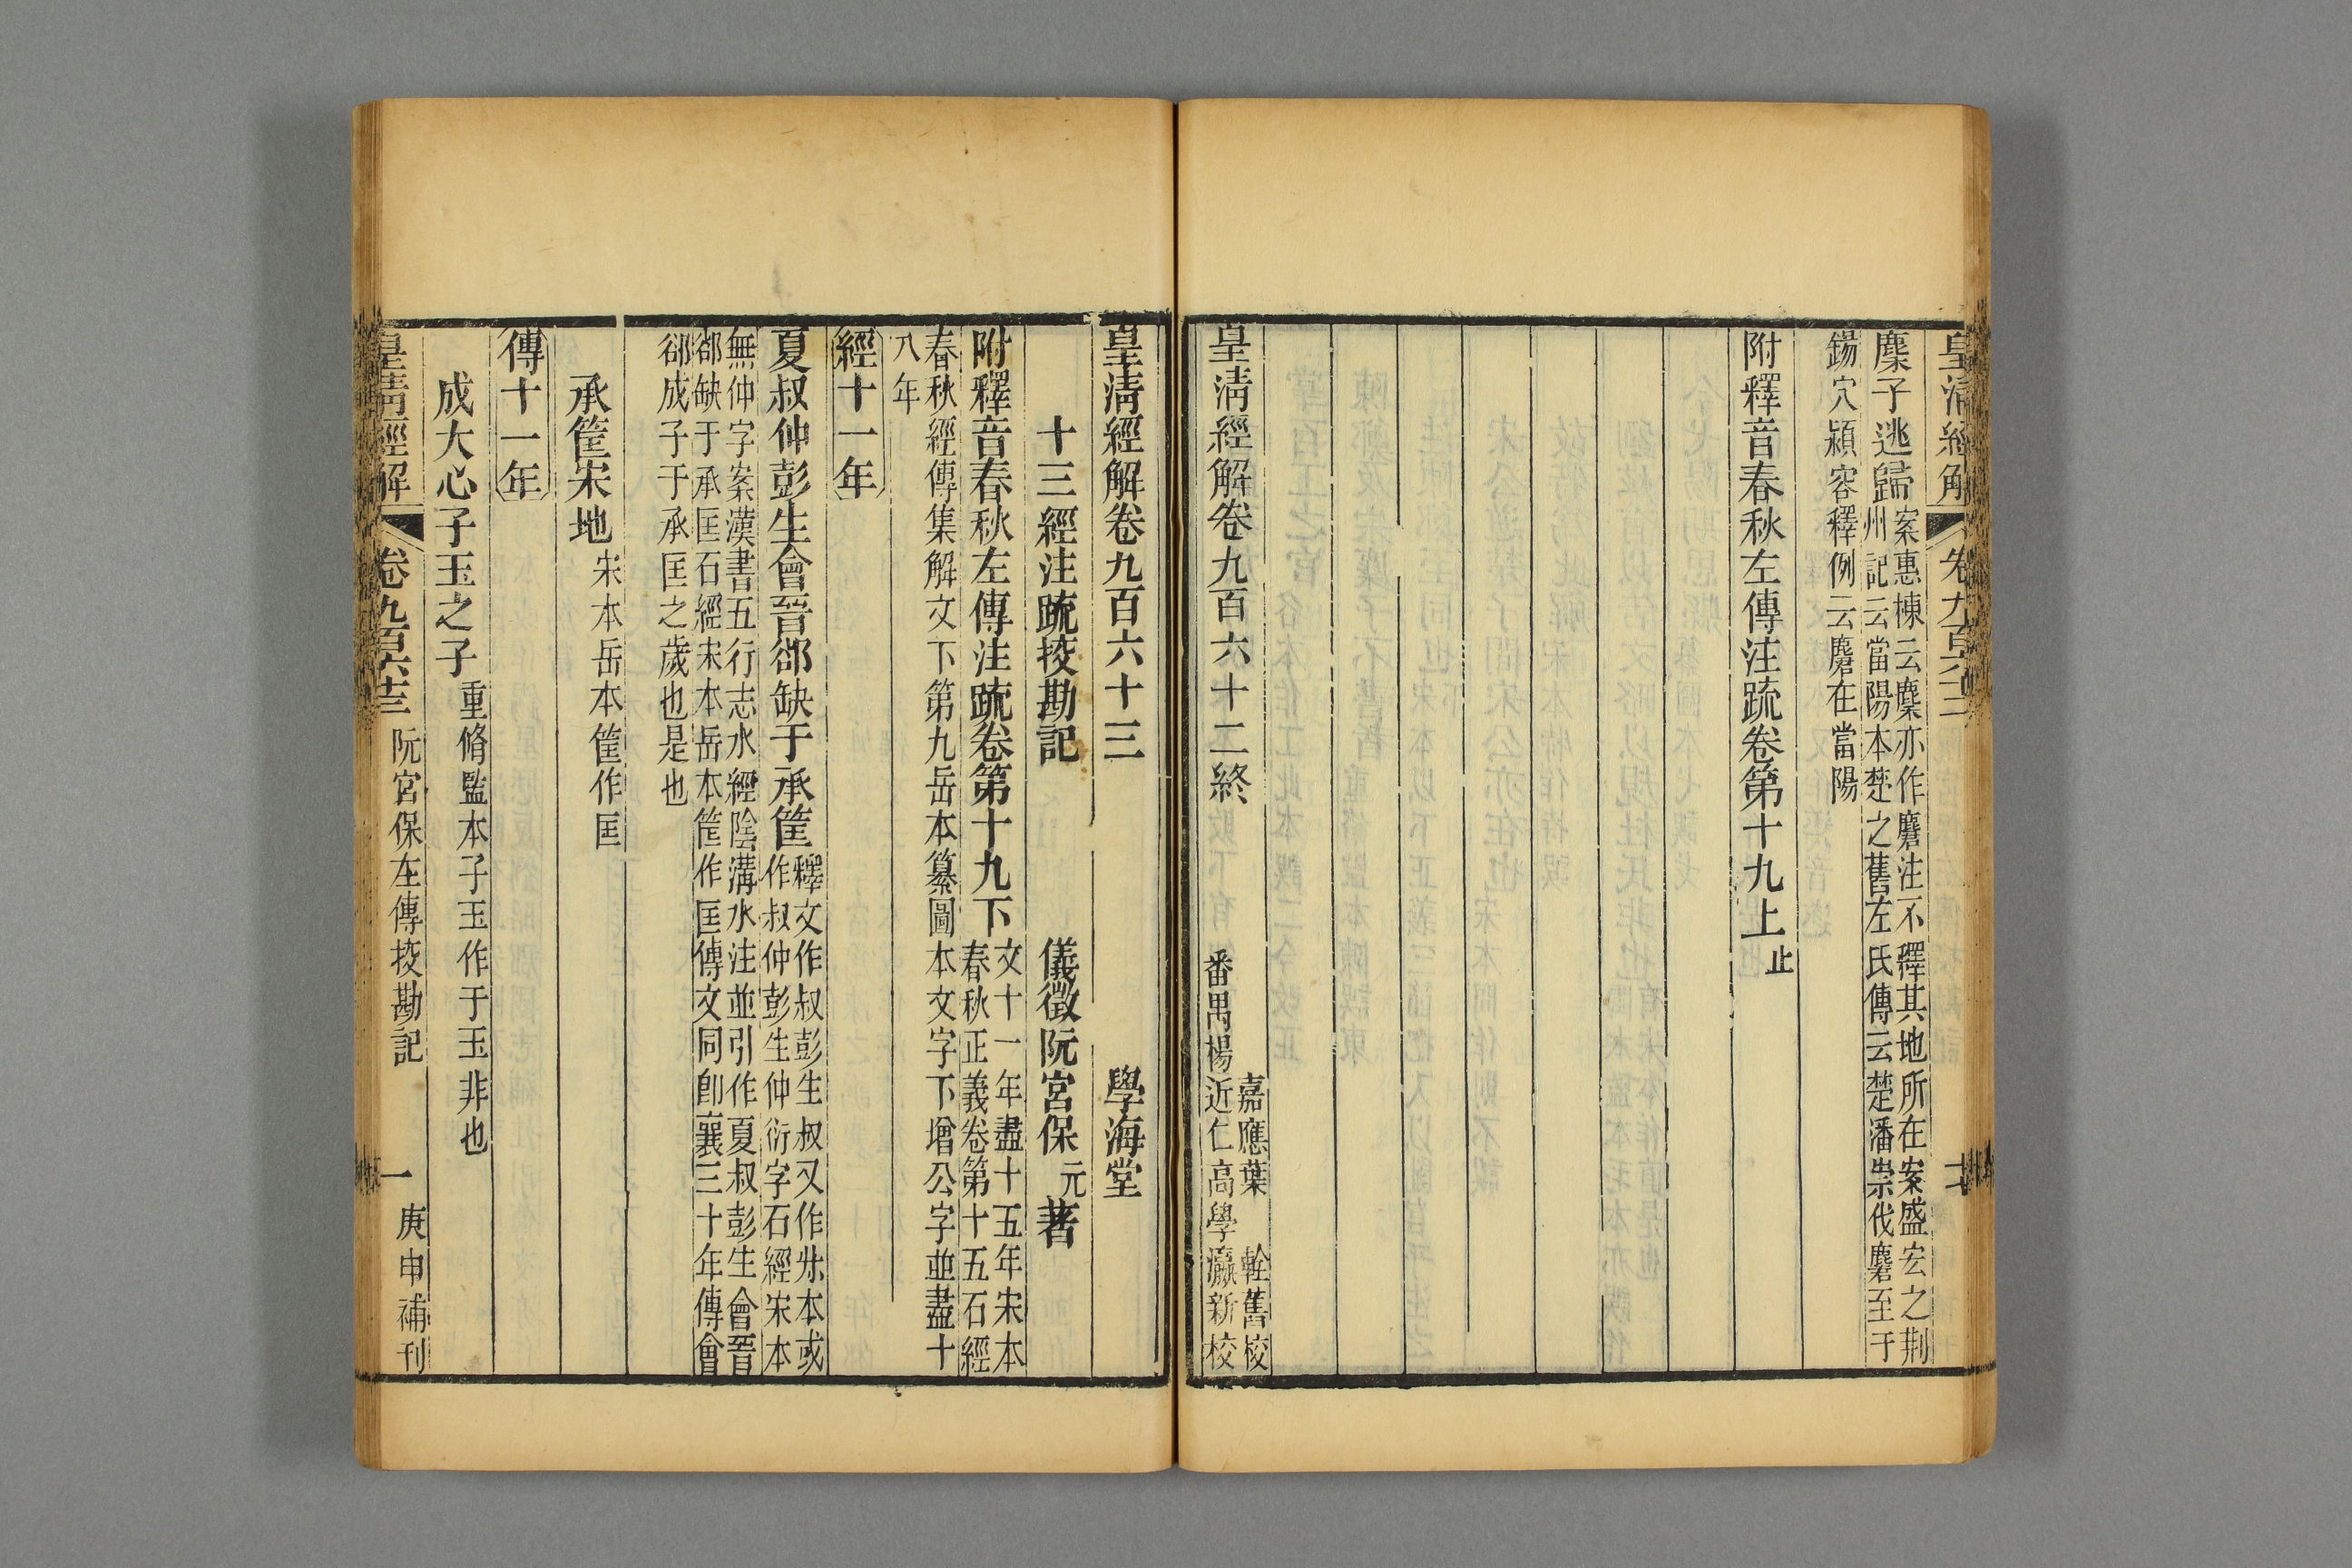 皇清經解
卷九百六十二
麇子逃歸案惠棟云麇亦作麏注不釋其地所在案盛宏之荆
州記云當陽本楚之舊左氏傳云楚潘崇伐麏至于
鍚穴潁容釋例云麏在當陽
附釋音春秋左傳注疏卷第十九上止
皇清經解卷九百六十二終
嘉應葉輇舊校
番禺楊近仁高學瀛新校
皇清經解卷九百六十三
學海堂
十三經注疏挍勘記
儀徵阮宮保元著
附釋音春秋左傳注疏卷第十九下文十一年盡十五年宋本
春秋正義卷第十五石經
春秋經傳集解文下第九岳本纂圖本文字下增公字並盡十
八年
經十一年
夏叔仲彭生會晉郤缺于承筐釋文作叔彭生叔又作𡬧本或
作叔仲彭生仲衍字石經宋本
無仲字案漢書五行志水經陰溝水注並引作夏叔彭生會晉
郤缺于承匡石經宋本岳本筐作匡傳文同卽襄三十年傳會
郤成子于承匡之歲也是也
承筐宋地宋本岳本筐作匡
傳十一年
成大心子玉之子重脩監本子玉作于玉非也
皇清經解
卷九百六十三
阮宮保左傳挍勘記
一
庚申補刊